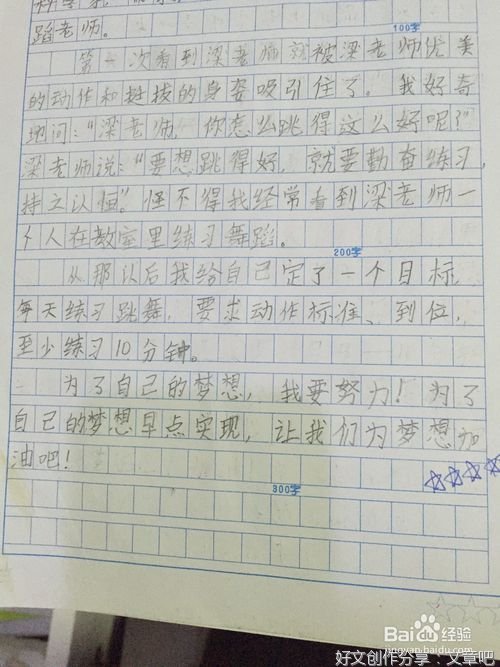 蹈老师。
100字
第一次看到梁老师就被梁老师优美
的动作和挺拔的身姿吸引住了。我好奇
地问：“梁老师，你怎么跳得这么好呢？”
梁老师说：“要想跳得好，就要勤奋练习，
持之以恒。”怪不得我经常看到梁老师一
个人在教室里练习舞蹈。
200字
从那以后我给自己定了一个目标，
每天练习跳舞，要求动作标准、到位，
至少练习10分钟。
为了自己的梦想，我要努力！为了
自己的梦想早点实现，让我们为梦想加
油吧！
300字
Baidu经验
jingyan.baidu.com
好文创作分享：文章吧